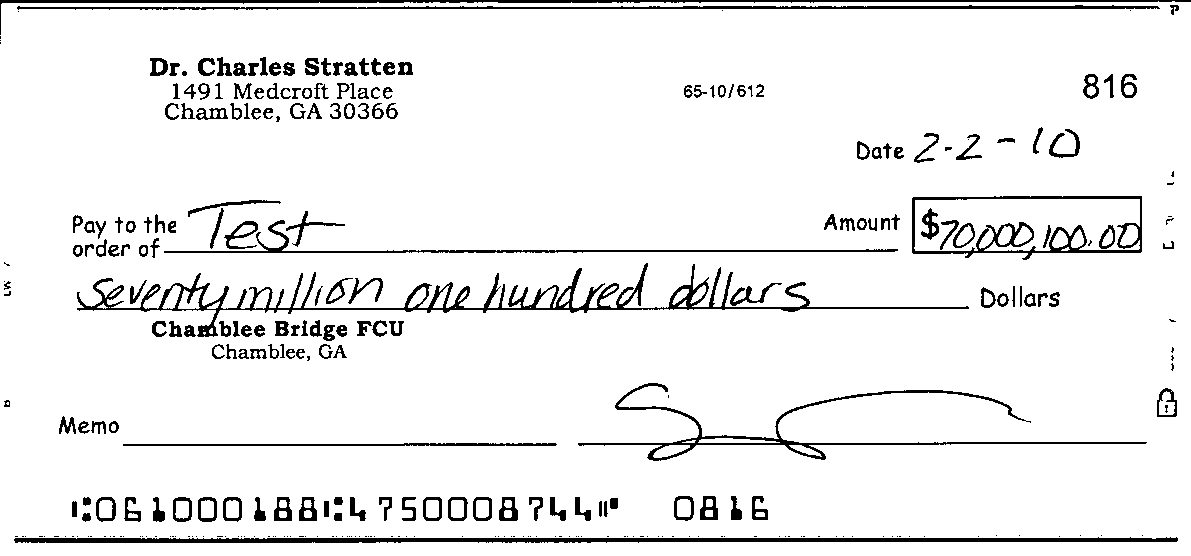 Dr. Charles Stratten
1491 Medcroft Place
Chamblee, GA 30366
65-10/612
816
Date 2-2-10
Pay to the order of Test
Amount $70,000,100.00
seventy million one hundred dollars Dollars
Chamblee Bridge FCU
Chamblee, GA
Memo
⑆061000188⑆4750008744⑈ 0816